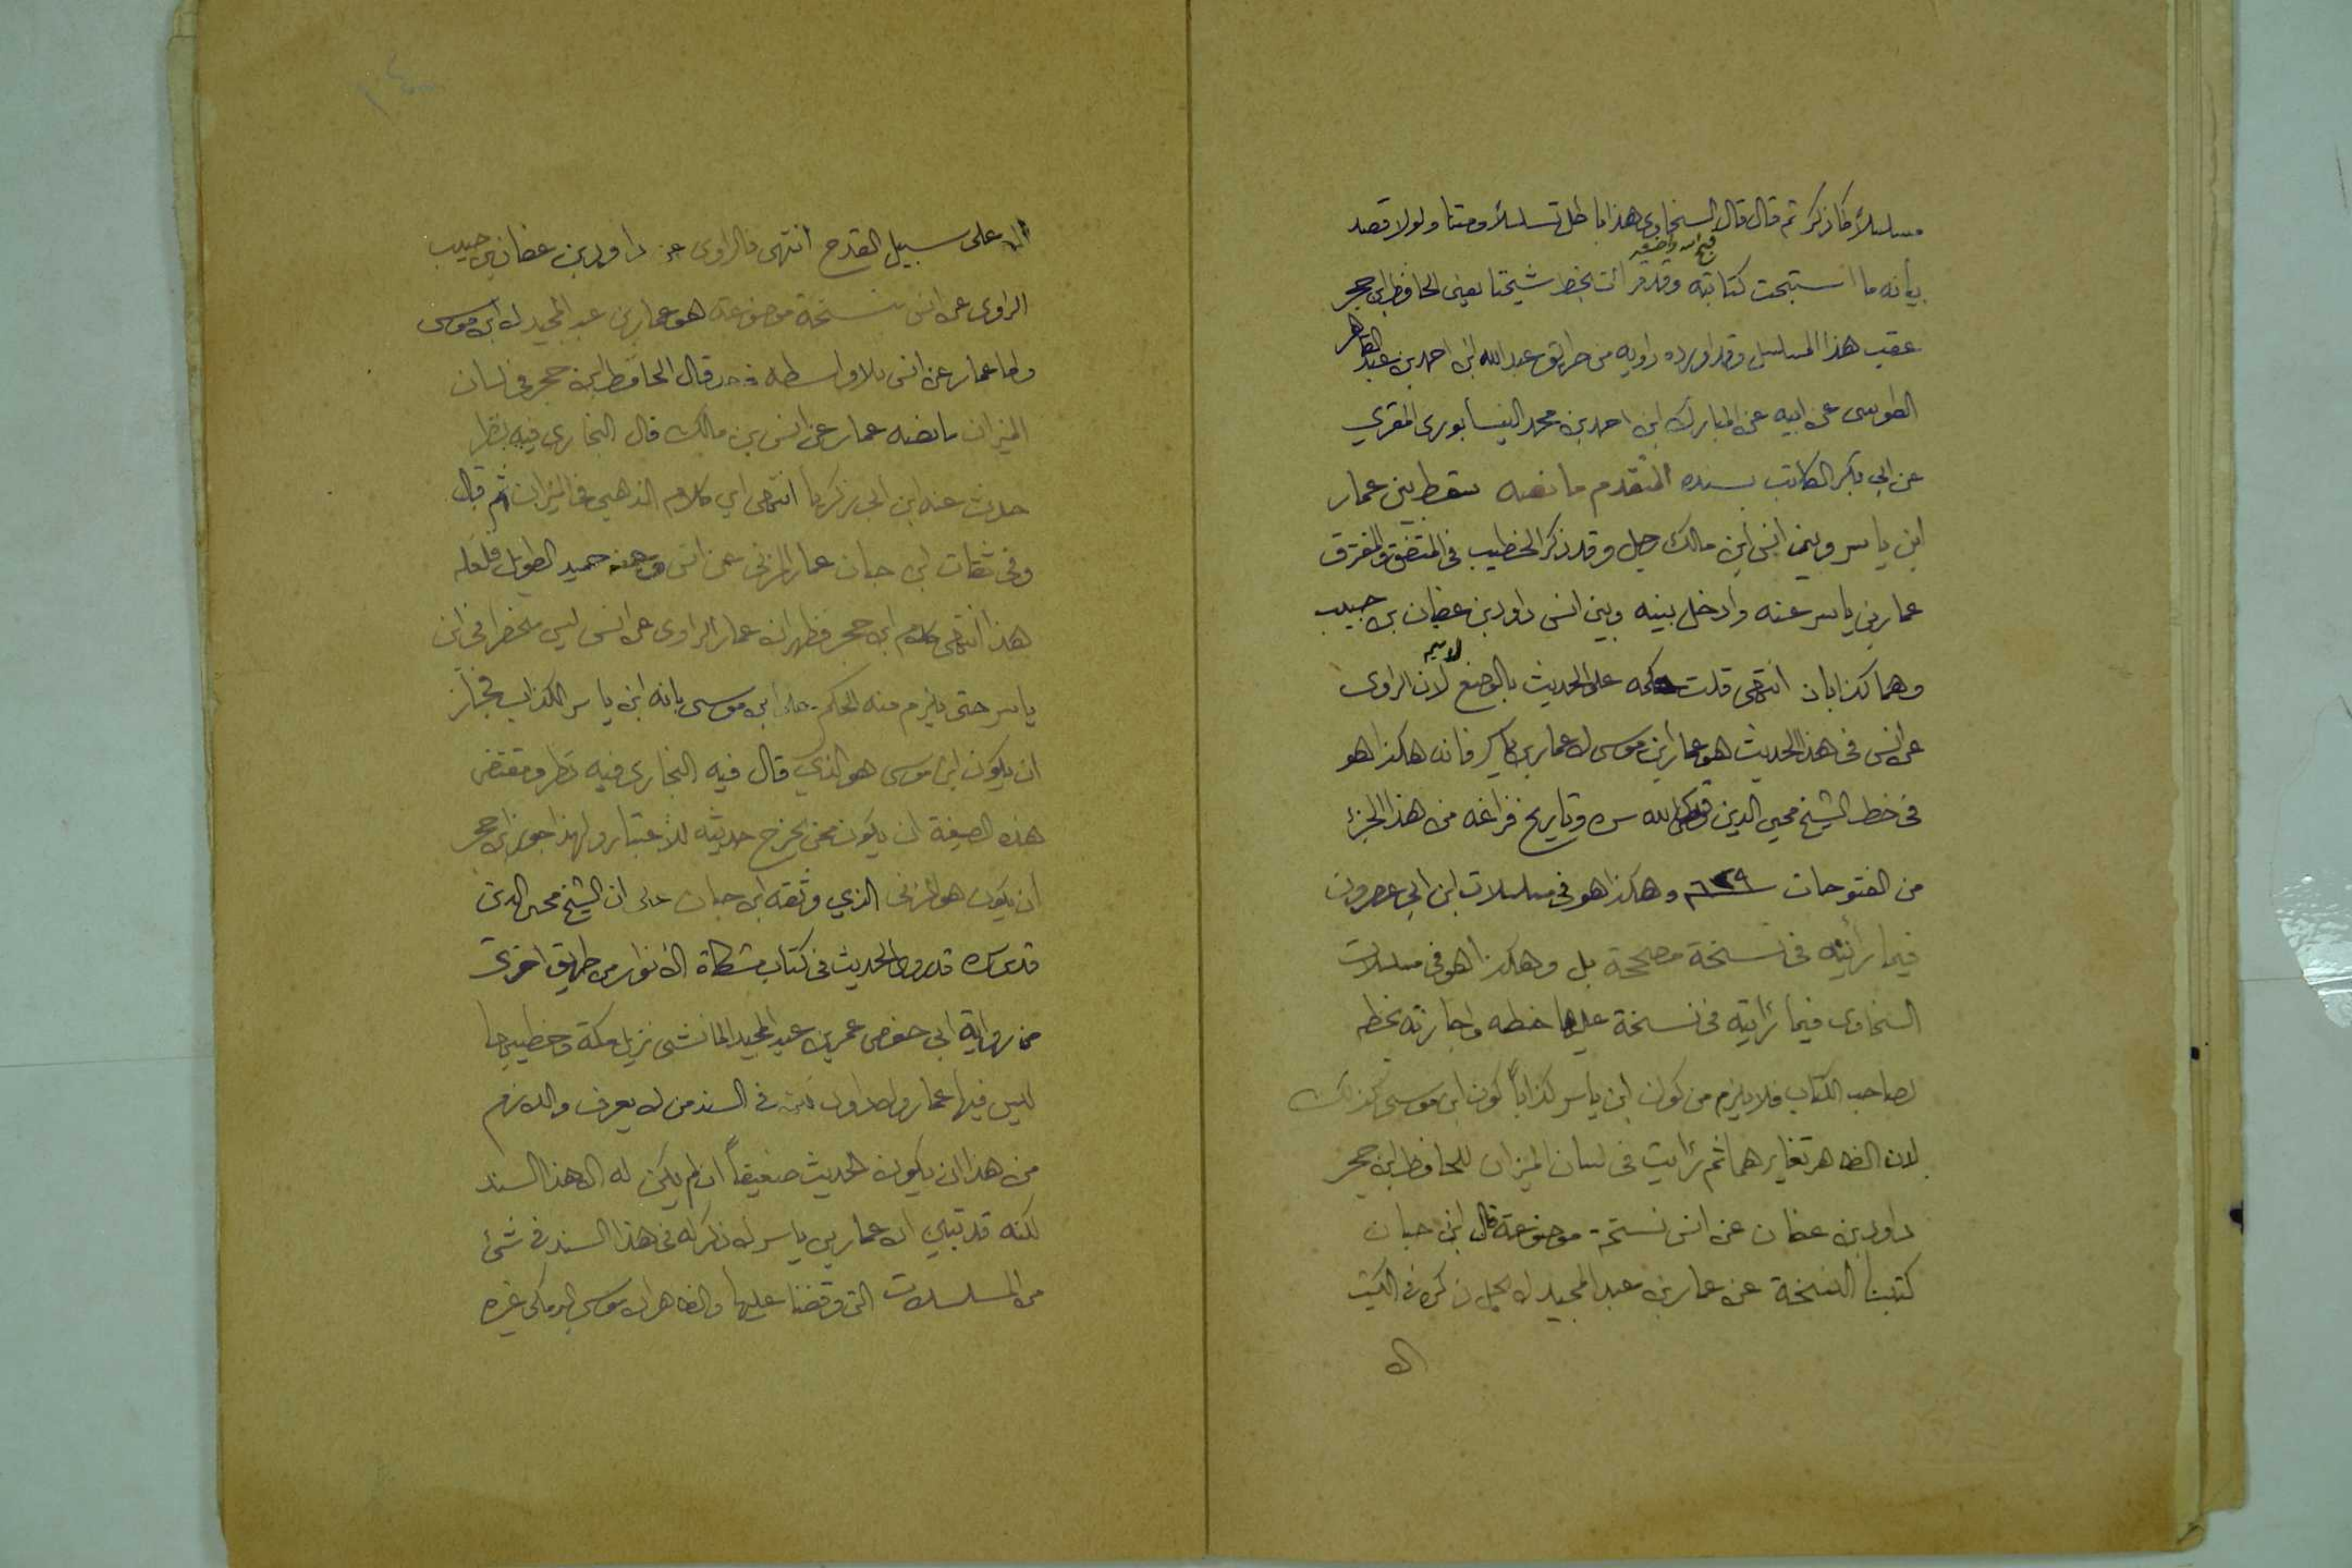 مسلسلاً كما ذكر ثم قال قال السخاوي هذا باطل تسلسلاً ومتنا ولولا قصد
بيانه ما استبحت كتابته قبح الله واضعه وقد قرأت بخط شيخنا يعني الحافظ ابن حجر
عقب هذا المسلسل وقد اورده راويه من طريق عبد الله ابن احمد بن عبد القاهر
الطوسى عن ابيه عن المبارك ابن احمد بن محمد النيسابورى المقري
عن ابي بكر الكاتب بسنده المتقدم ما نصه سقط بين عمار
ابن ياسر وبين انس ابن مالك رجل وقد ذكر الخطيب في المتفق والمفترق
عمار بن ياسر عنه وادخل بينه وبين انس داود بن عفان بن حبيب
وهما كذابان انتهى قلت حكمه على الحديث بالوضع لا يتم لان الراوى
عن انس في هذا الحديث هو عمار ابن موسى لا عمار بن ياسر فانه هكذا هو
في خط الشيخ محيى الدين قدس الله سره وتاريخ فراغه من هذا الجزئ
من الفتوحات وهكذا هو في مسلسلات ابن ابي عصرون
فيما رأيته في نسخة مصححة بل وهكذا هو في مسلسلات
السخاوى فيما رأيته في نسخة عليها خطه واجازته بخطه
لصاحب الكتاب فلا يلزم من كون ابن ياسر كذاباً كون ابن موسى كذلك
لان الظاهر تغايرهما ثم رأيت في لسان الميزان للحافظ ابن حجر
داود بن عفان عن انس نسخة موضوعة قال ابن حبان
كتبنا النسخة عن عمار بن عبد المجيد لا يحل ذكره في الكتب
الا
الا على سبيل القدح انتهى فالراوى عن داود بن عفان بن حبيب
الراوى عن انس نسخة موضوعة هو عمار بن عبد المجيد لا ابن موسى
واما عمار عن انس بلا واسطه فقد قال الحافظ ابن حجر في لسان
الميزان ما نصه عمار عن انس بن مالك قال البخارى فيه نظر
حدث عنه ابن ابي زكريا انتهى اي كلام الذهبي في الميزان ثم قال
وفي ثقات ابن حبان عمار المزنى عن انس وعنه حميد الطويل فلعله
هذا انتهى كلام ابن حجر فظهر ان عمار الراوى عن انس ليس منحصرا في ابن
ياسر حتى يلزم منه الحكم على ابن موسى بانه ابن ياسر الكذاب فجاز
ان يكون ابن موسى هو الذي قال فيه البخارى فيه نظر ومقتضى
هذه الصيغة ان يكون ممن يخرج حديثه للاعتبار ولهذا جوز ابن حجر
ان يكون هو المزنى الذي وثقه ابن حبان على ان الشيخ محيى الدين
قدس سره قد روى الحديث في كتاب مشكاة الانوار من طريق اخرى
من رواية ابي حفص عمر بن عبد المجيد المانشى نزيل مكة وخطيبها
ليس فيها عمار ولا داود في السند من لا يعرف واللازم
من هذا ان يكون الحديث ضعيفاً ان لم يكن له الا هذا السند
لكنه قد تبين ان عمار بن ياسر لا ذكر له في هذا السند في شئ
من المسلسلات التى وقفنا عليها والظاهر ان موسى البرمكي غيره